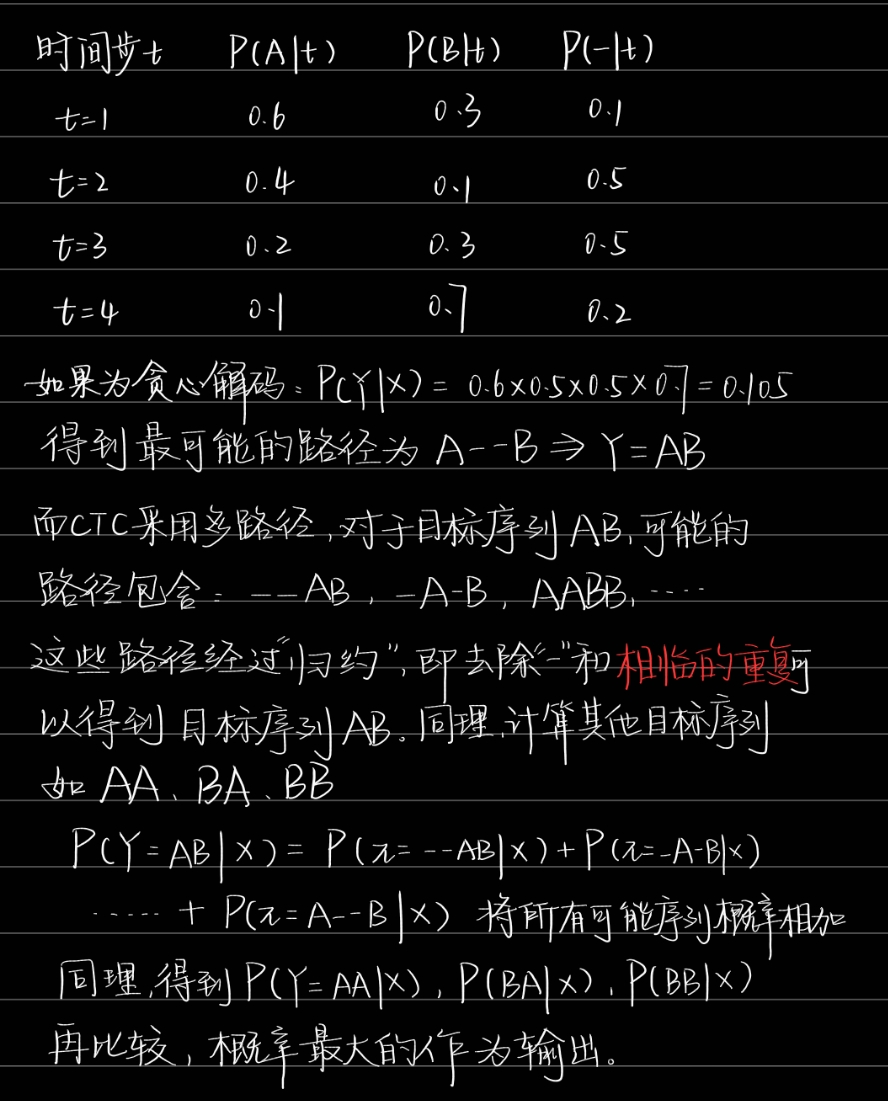 时间步t P(A|t) P(B|t) P(-|t)
t=1 0.6 0.3 0.1
t=2 0.4 0.1 0.5
t=3 0.2 0.3 0.5
t=4 0.1 0.7 0.2
如果为贪心解码: P(Y|X) = 0.6×0.5×0.5×0.7 = 0.105
得到最可能的路径为 A--B ⇒ Y=AB
而CTC采用多路径,对于目标序列AB,可能的
路径包含: --AB, -A-B, AABB, ....
这些路径经过"归约",即去除"-"和相临的重复可
以得到目标序列AB。同理,计算其他目标序列
如 AA、BA、BB
P(Y=AB|X) = P(π=--AB|X) + P(π=-A-B|X)
..... + P(π=A--B|X) 将所有可能序列概率相加
同理,得到P(Y=AA|X), P(BA|X), P(BB|X)
再比较,概率最大的作为输出。